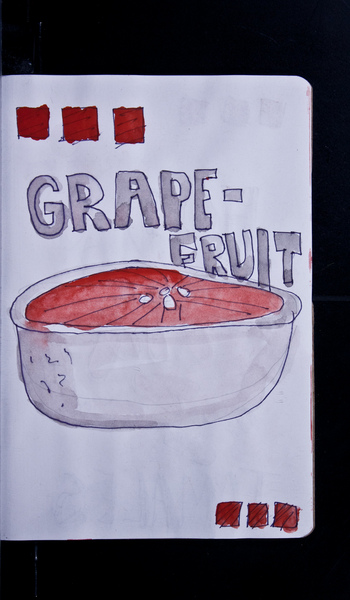 GRAPE-
FRUIT